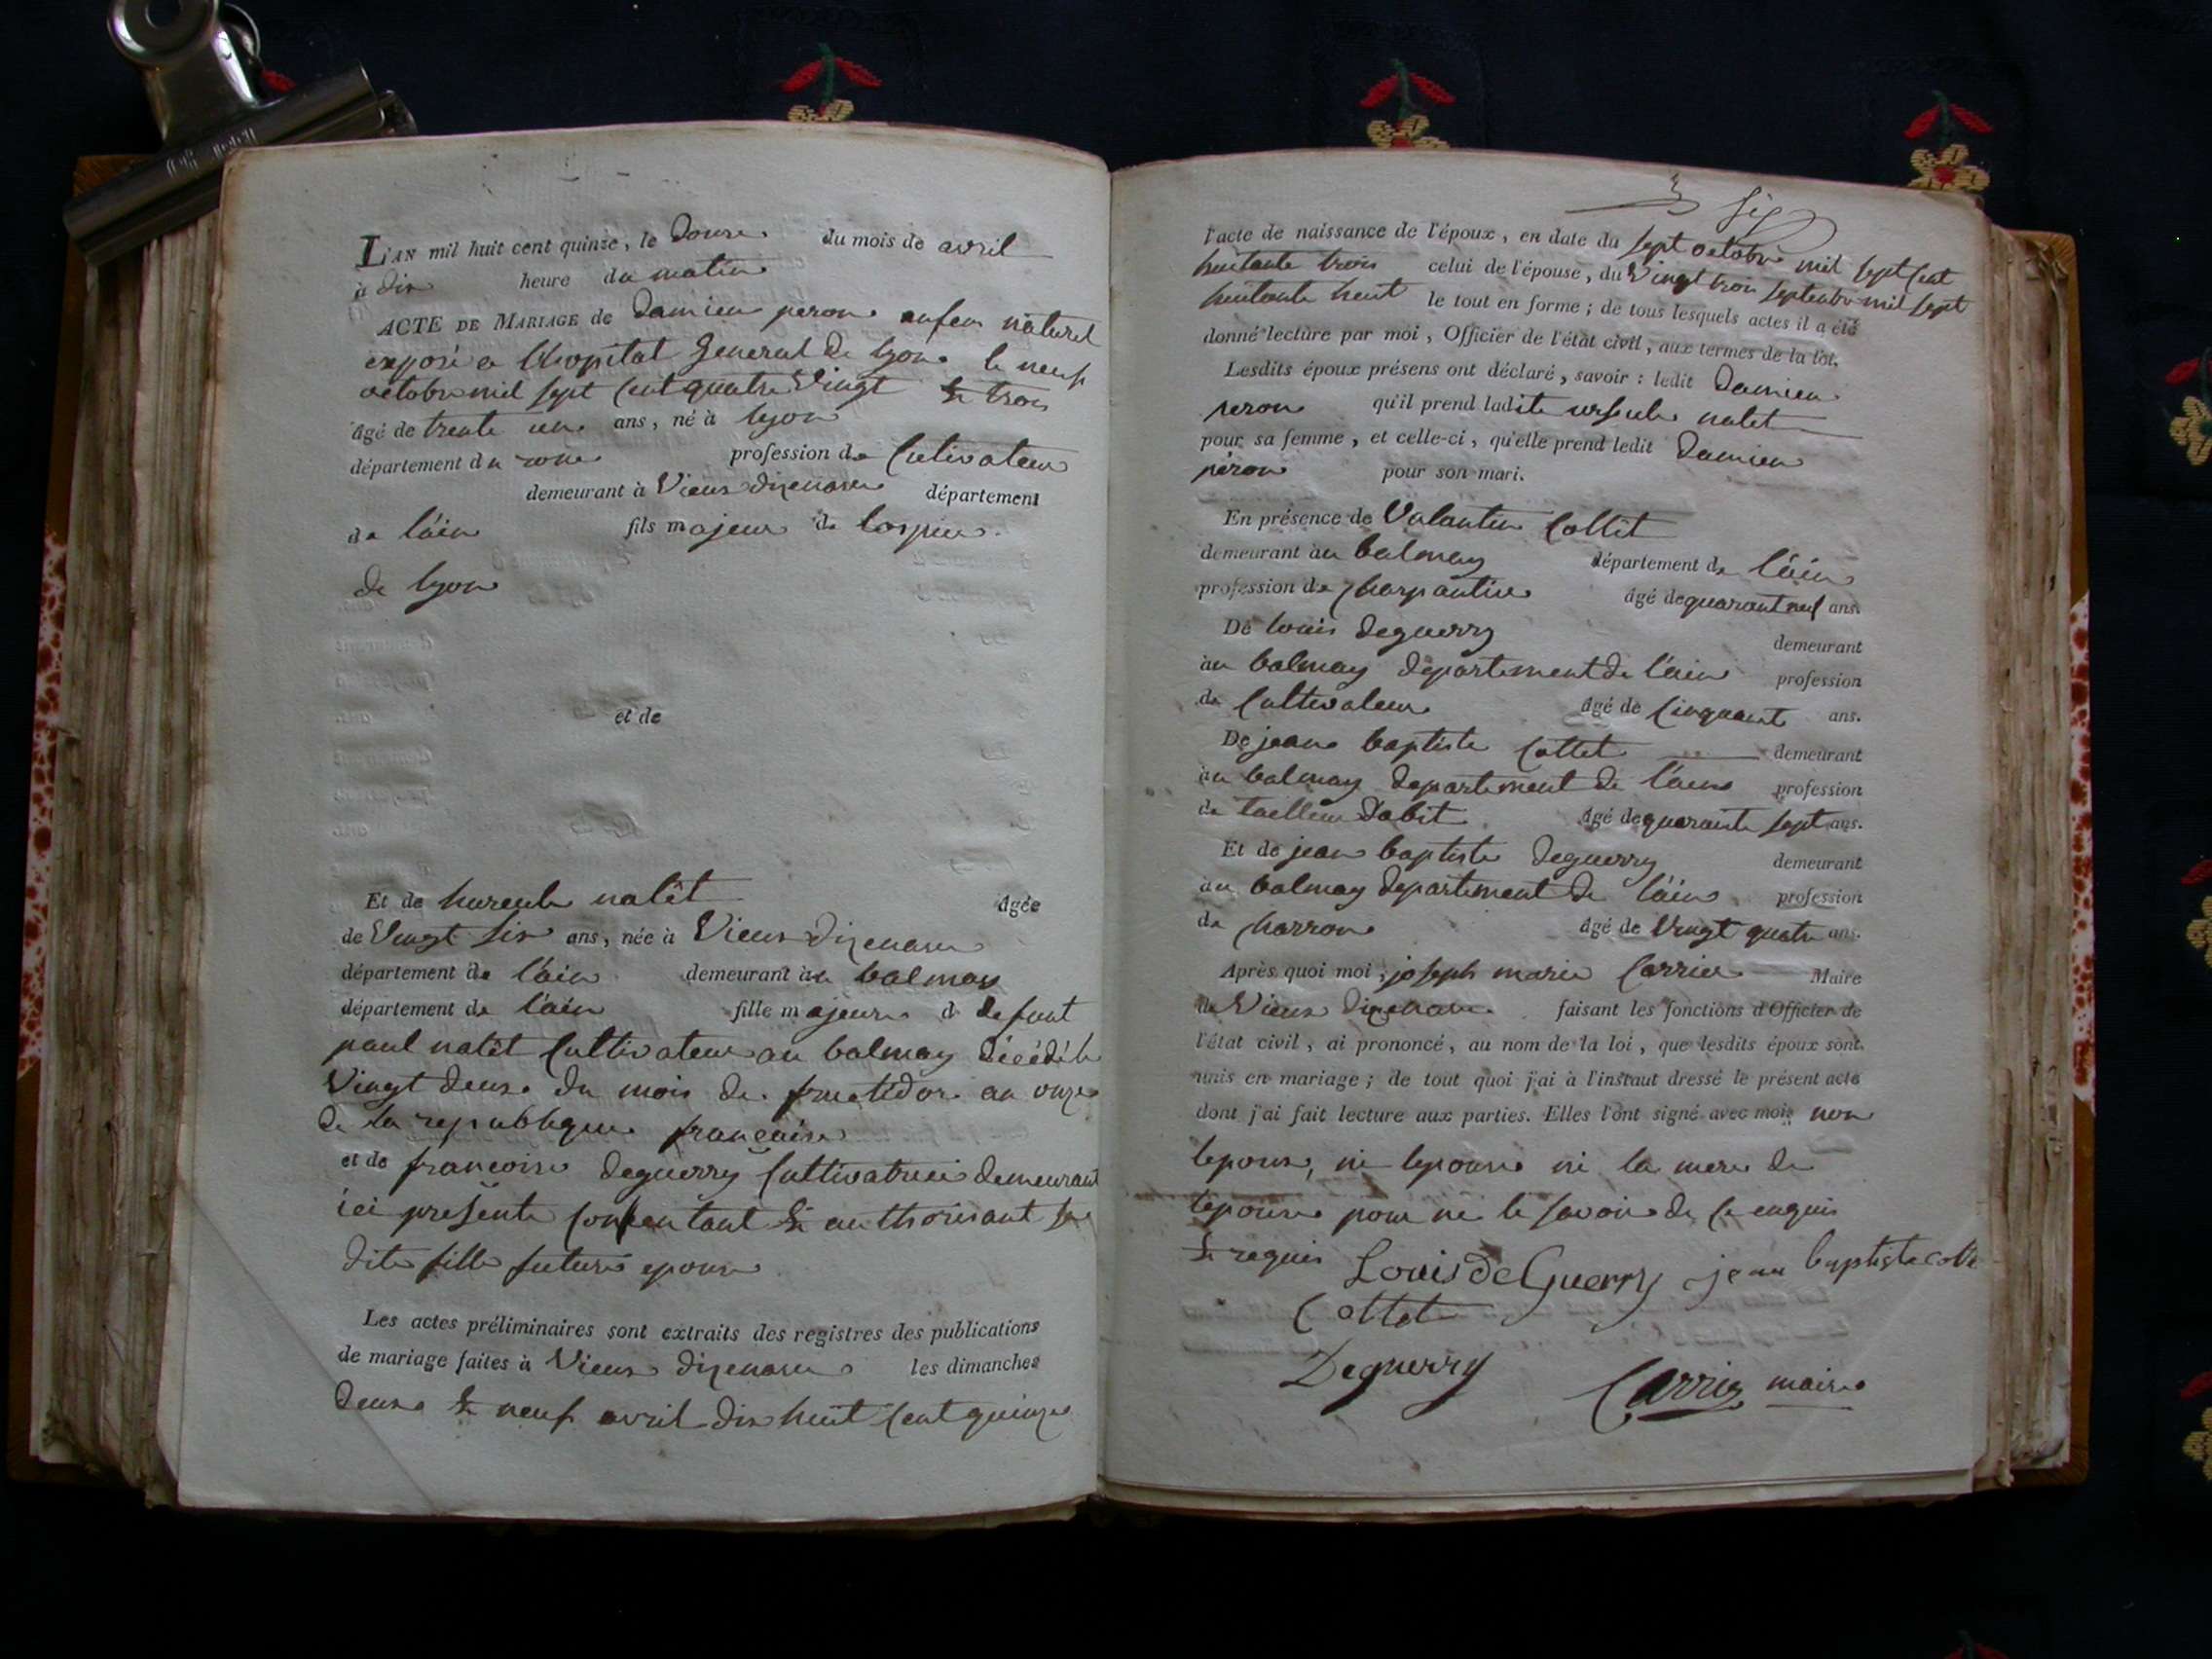 L'AN mil huit cent quinze, le Douze du mois de avril
à dix heure du matin
ACTE DE MARIAGE de Damien peron enfan naturel
exposé a l'hopital General de lyon le neuf
octobre mil sept Cent quatre Vingt Et trois
âgé de trente un ans, né à lyon
département du rone profession de Cultivateur
demeurant à Vieux dizenave département
de l'áin fils majeur de lospice
de lyon
et de
Et de hursule natêt âgée
de Vingt Six ans, née à Vieux dizenave
département de l'áin demeurant au balmay
département de l'áin fille majeure d defunt
paul natêt Cultivateur au balmay décédé le
Vingt deuxe du mois de fructidor an onze
de la republique française
et de françoise deguerry Cultivatrice demeurant
ici presente Consentant Et authorisant sa
dite fille future epouse
Les actes préliminaires sont extraits des registres des publications
de mariage faites à Vieux dizenave les dimanches
deuxe Et neuf avril dix huit Cent quinze
Six
l'acte de naissance de l'époux, en date du sept octobre mil sept Cent
huitante trois celui de l'épouse, du Vingt trois septembre mil sept
huitante heut le tout en forme ; de tous lesquels actes il a été
donné lecture par moi, Officier de l'état civil, aux termes de la loi.
Lesdits époux présens ont déclaré, savoir : ledit Damien
peron qu'il prend ladite ursule natet
pour sa femme, et celle-ci, qu'elle prend ledit Damien
péron pour son mari.
En présence de Valantin Collet
demeurant au balmay département de l'áin
profession de Charpantier âgé de quarant neuf ans.
De louis deguerry demeurant
au balmay departement de l'ain profession
de Cultivateur âgé de Cinquante ans.
De jean baptiste Collet demeurant
au balmay departement de l'ain profession
de tailleur dabit âgé de quarante sept ans.
Et de jean baptiste deguerry demeurant
au balmay departement de l'áin profession
de Charron âgé de Vingt quatre ans.
Après quoi moi, joseph marie Carrier Maire
de Vieux dizenave faisant les fonctions d'Officier de
l'état civil, ai prononcé, au nom de la loi, que lesdits époux sont
unis en mariage ; de tout quoi j'ai à l'instant dressé le présent acte
dont j'ai fait lecture aux parties. Elles l'ont signé avec moi; non
lepoux, ni lepouse ni la mere de
lepouse pour ne le savoir de ce enquis
Et requis Louis deGuerry jean baptiste
Collet
Deguerry Carrier maire